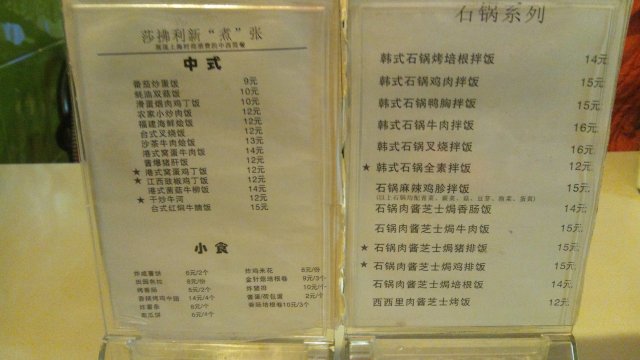 莎拂利新“煮”张
中式
番茄炒蛋饭 9元
蚝油双菇饭 10元
滑蛋烟肉鸡丁饭 10元
农家小炒肉饭 12元
福建海鲜烩饭 12元
台式叉烧饭 12元
沙茶牛肉烩饭 13元
港式窝蛋牛肉饭 14元
酱爆猪肝饭 12元
★ 港式窝蛋鸡丁饭 12元
★ 江西豉椒鸡丁饭 12元
港式茜菇牛柳饭 14元
★ 干炒牛河 12元
台式红焖牛腩饭 15元
小食
炸咸薯饼 6元/2个
田园色拉 6元/份
烤香肠 5元/2个
香辣烤鸡中翅 14元/4个
炸薯条 6元/个
南瓜饼 6元/4个
炸鸡米花 8元/份
金针菇培根卷 9元/3个
炸猪排 10元/个
酱蛋/荷包蛋 2元/个
香肠培根卷10元/3个
石锅系列
韩式石锅烤培根拌饭 14元
韩式石锅鸡肉拌饭 15元
韩式石锅鸭胸拌饭 15元
韩式石锅牛肉拌饭 16元
韩式石锅叉烧拌饭 16元
★ 韩式石锅全素拌饭 12元
石锅麻辣鸡胗拌饭 15元
石锅肉酱芝士焗香肠饭 14元
石锅肉酱芝士焗牛肉饭 15元
★ 石锅肉酱芝士焗猪排饭 15元
★ 石锅肉酱芝士焗鸡排饭 15元
石锅肉酱芝士焗培根饭 14元
西西里肉酱芝士烤饭 12元